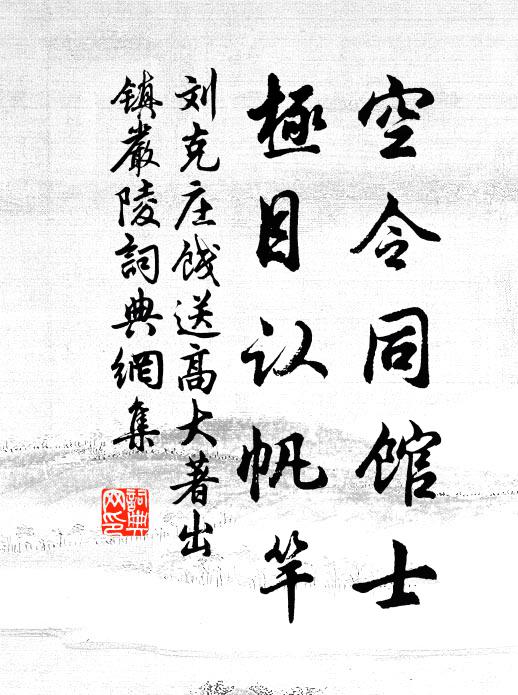 空令同馆士
極目认帆竿
刘克庄饯送高大著出
镇嚴陵詞典網集
詞典
网印